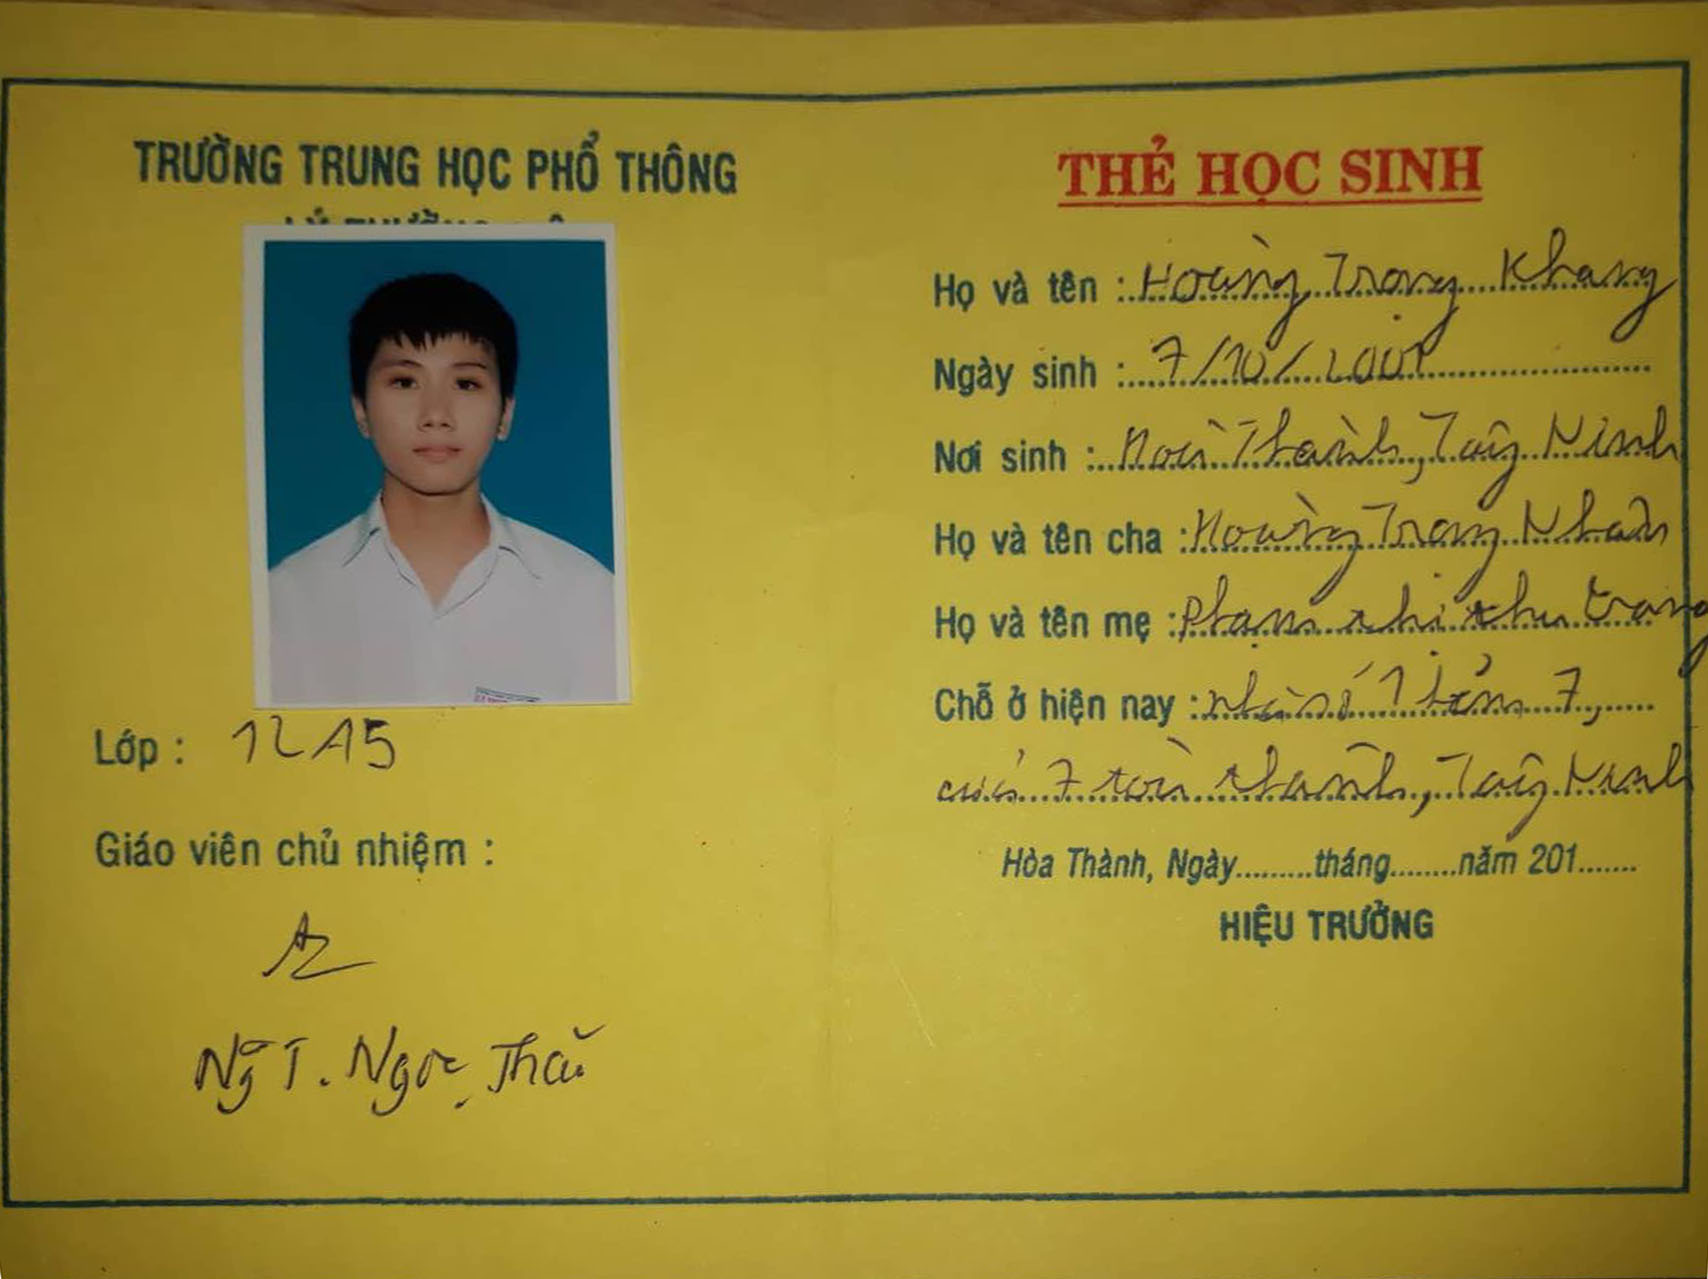 TRƯỜNG TRUNG HỌC PHỔ THÔNG
LÝ THƯỜNG
Lớp : 12A5
Giáo viên chủ nhiệm :
Ng T. Ngọc
THẺ HỌC SINH
Họ và tên : Hoàng Trọng Khang
Ngày sinh : 7/10/2001
Nơi sinh : Hoà Thành, Tây Ninh
Họ và tên cha : Hoàng Trọng Nhân
Họ và tên mẹ : Phạm thị thu trang
Chỗ ở hiện nay : nhà số 1 hẻm 7,
7 toà thánh, Tây Ninh
Hòa Thành, Ngày.........tháng........năm 201.......
HIỆU TRƯỞNG